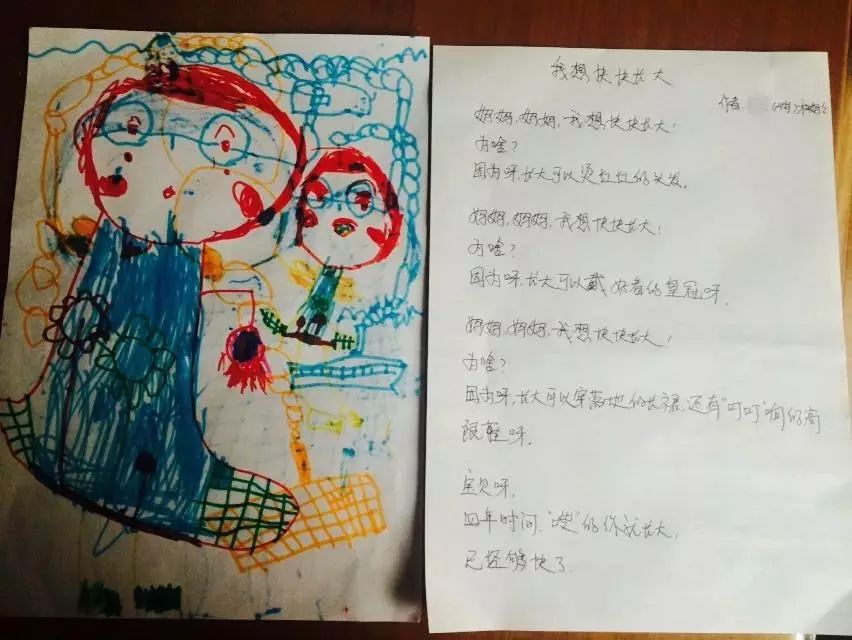 我想快快长大
作者：
妈妈，妈妈，我想快快长大！
为啥？
因为呀，长大可以烫红红的头发。
妈妈，妈妈，我想快快长大！
为啥？
因为呀，长大可以戴好看的皇冠呀。
妈妈，妈妈，我想快快长大！
为啥？
因为呀，长大可以穿落地的长裙，还有“叮叮”响的高
跟鞋呀。
宝贝呀，
四年时间，“嗖”的你就长大，
已经够快了。